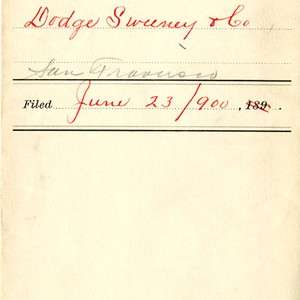 Dodge Sweeney & Co,
San Francisco
Filed June 23/900, 189 .